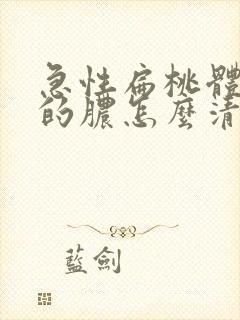 急性扁桃體
的膿怎麼清
藍劍